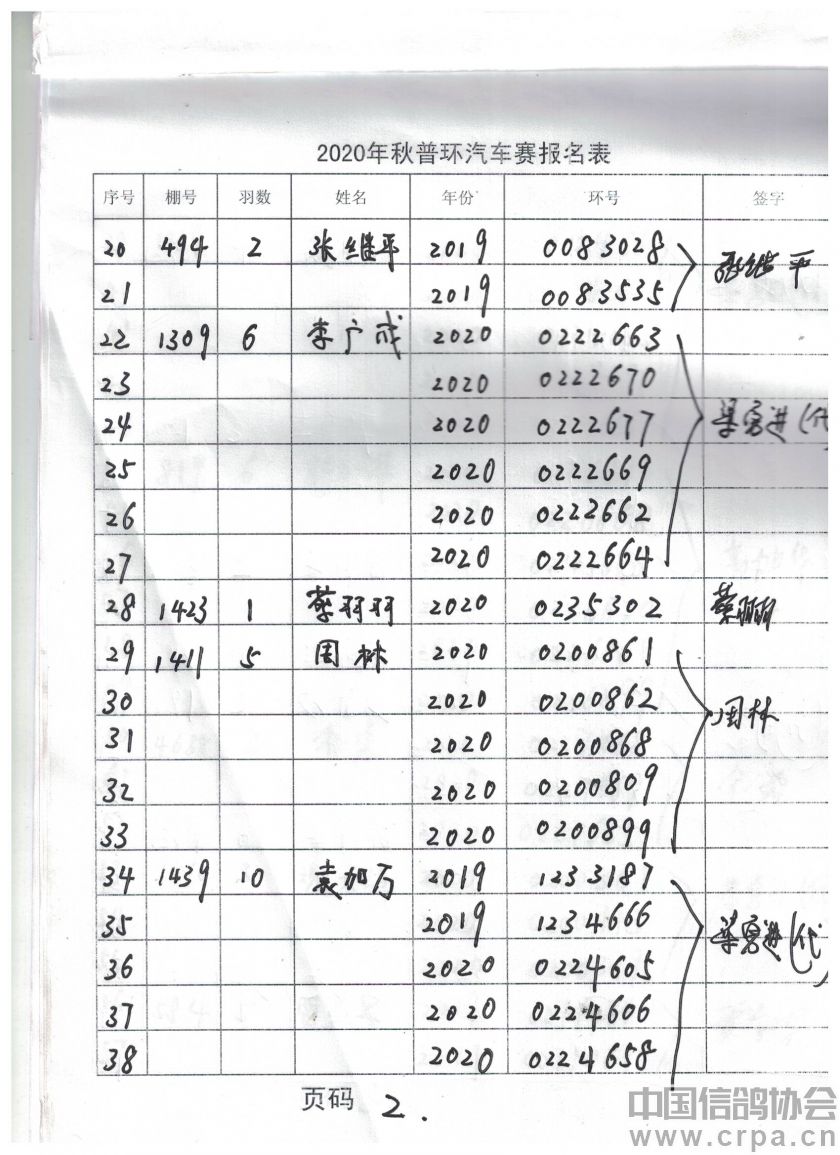 2020年秋普环汽车赛报名表
序号 棚号 羽数 姓名 年份 环号 签字
20 494 2 张继平 2019 0083028 张继平
21 2019 0083535
22 1309 6 李广成 2020 0222663
23 2020 0222670
24 2020 0222677 (代
25 2020 0222669
26 2020 0222662
27 2020 0222664
28 1423 1 蔡羽羽 2020 0235302 蔡
29 1411 5 周林 2020 0200861
30 2020 0200862 周林
31 2020 0200868
32 2020 0200809
33 2020 0200899
34 1439 10 袁加万 2019 1233187
35 2019 1234666 (代)
36 2020 0224605
37 2020 0224606
38 2020 0224658
页码 2.
中国信鸽协会
www.crpa.cn